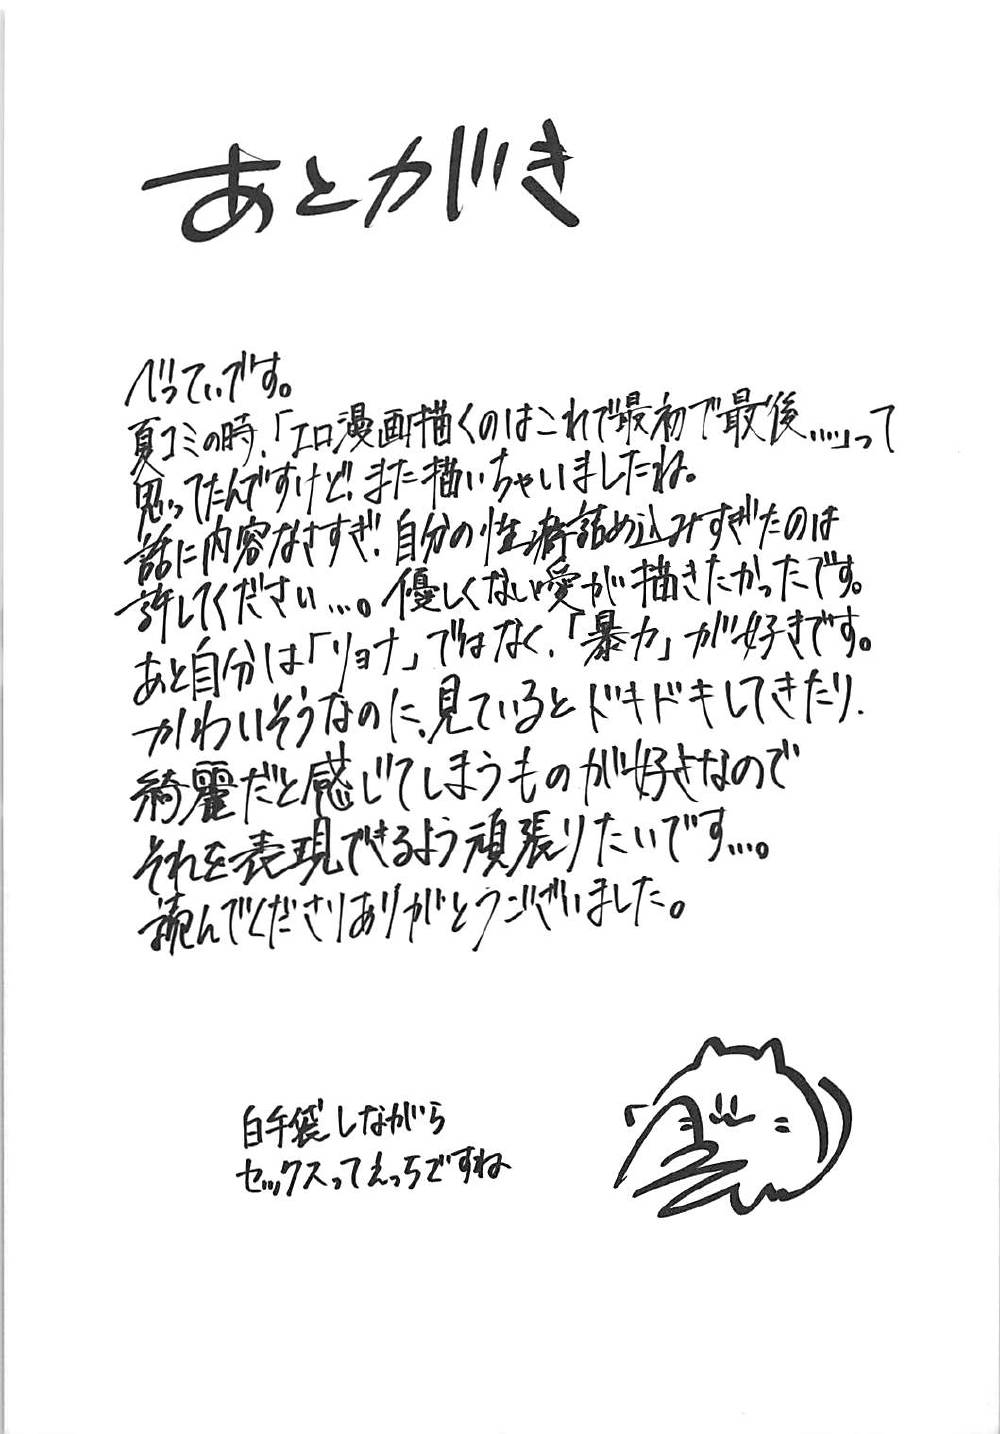 あとがき
べってぃです。
夏コミの時、「エロ漫画描くのはこれで最初で最後....」って
思ってたんですけど、また描いちゃいましたね。
話に内容なさすぎ、自分の性癖詰め込みすぎたのは
許してください...。優しくない愛が描きたかったです。
あと自分は「リョナ」ではなく、「暴力」が好きです。
かわいそうなのに、見ているとドキドキしてきたり、
綺麗だと感じてしまうものが好きなので
それを表現できるよう頑張りたいです...。
読んでくださりありがとうございました。
白手袋しながら
セックスってえっちですね